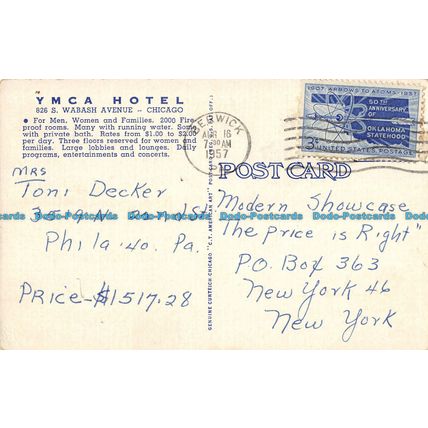 YMCA HOTEL
826 S. WABASH AVENUE -- CHICAGO
For Men, Women and Families. 2000 Fire-
proof rooms. Many with running water. Some
with private bath. Rates from $1.00 to $2.00
per day. Three floors reserved for women and
families. Large lobbies and lounges. Daily
programs, entertainments and concerts.
MRS
Toni Decker
Phila 40. Pa.
PRICE - $1517.28
GENUINE CURTEICH-CHICAGO "C.T. AMERICAN ART"
BERWICK
APR 16
7 AM
1957
1907 · ARROWS TO ATOMS · 1957
50TH
ANNIVERSARY
OF
OKLAHOMA
STATEHOOD
3¢
UNITED STATES POSTAGE
POST CARD
Modern Showcase
"The Price is Right"
P.O. Box 363
New York 46
New York
Dodo-Postcards Dodo-Postcards Dodo-Postcards Dodo-Postcards